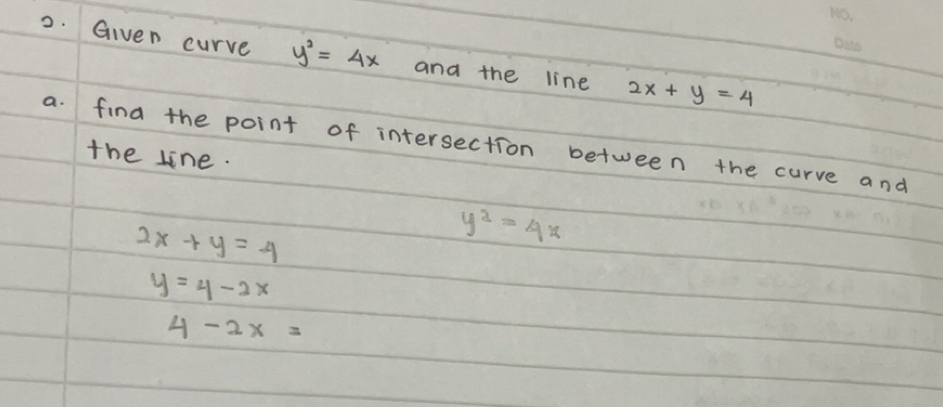 NO.
Date
2. Given curve y² = 4x and the line 2x + y = 4
a. find the point of intersection between the curve and
the line.
y² = 4x
2x + y = 4
y = 4 - 2x
4 - 2x =